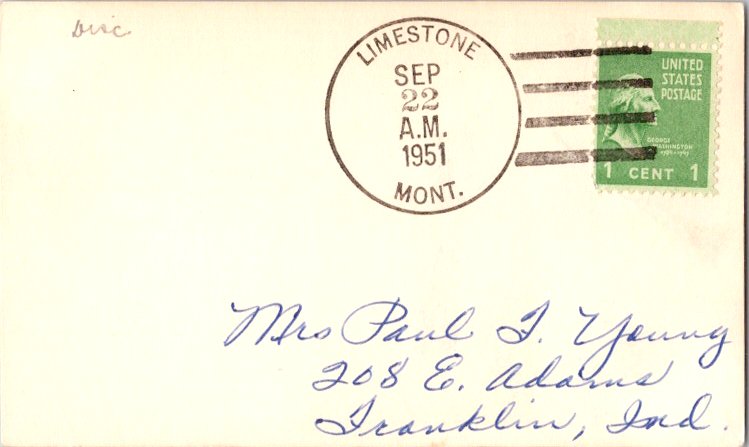 Disc
LIMESTONE
SEP
22
A.M.
1951
MONT.
UNITED
STATES
POSTAGE
GEORGE
WASHINGTON
1 CENT 1
Mrs Paul F. Young
208 E. Adams
Franklin, Ind.